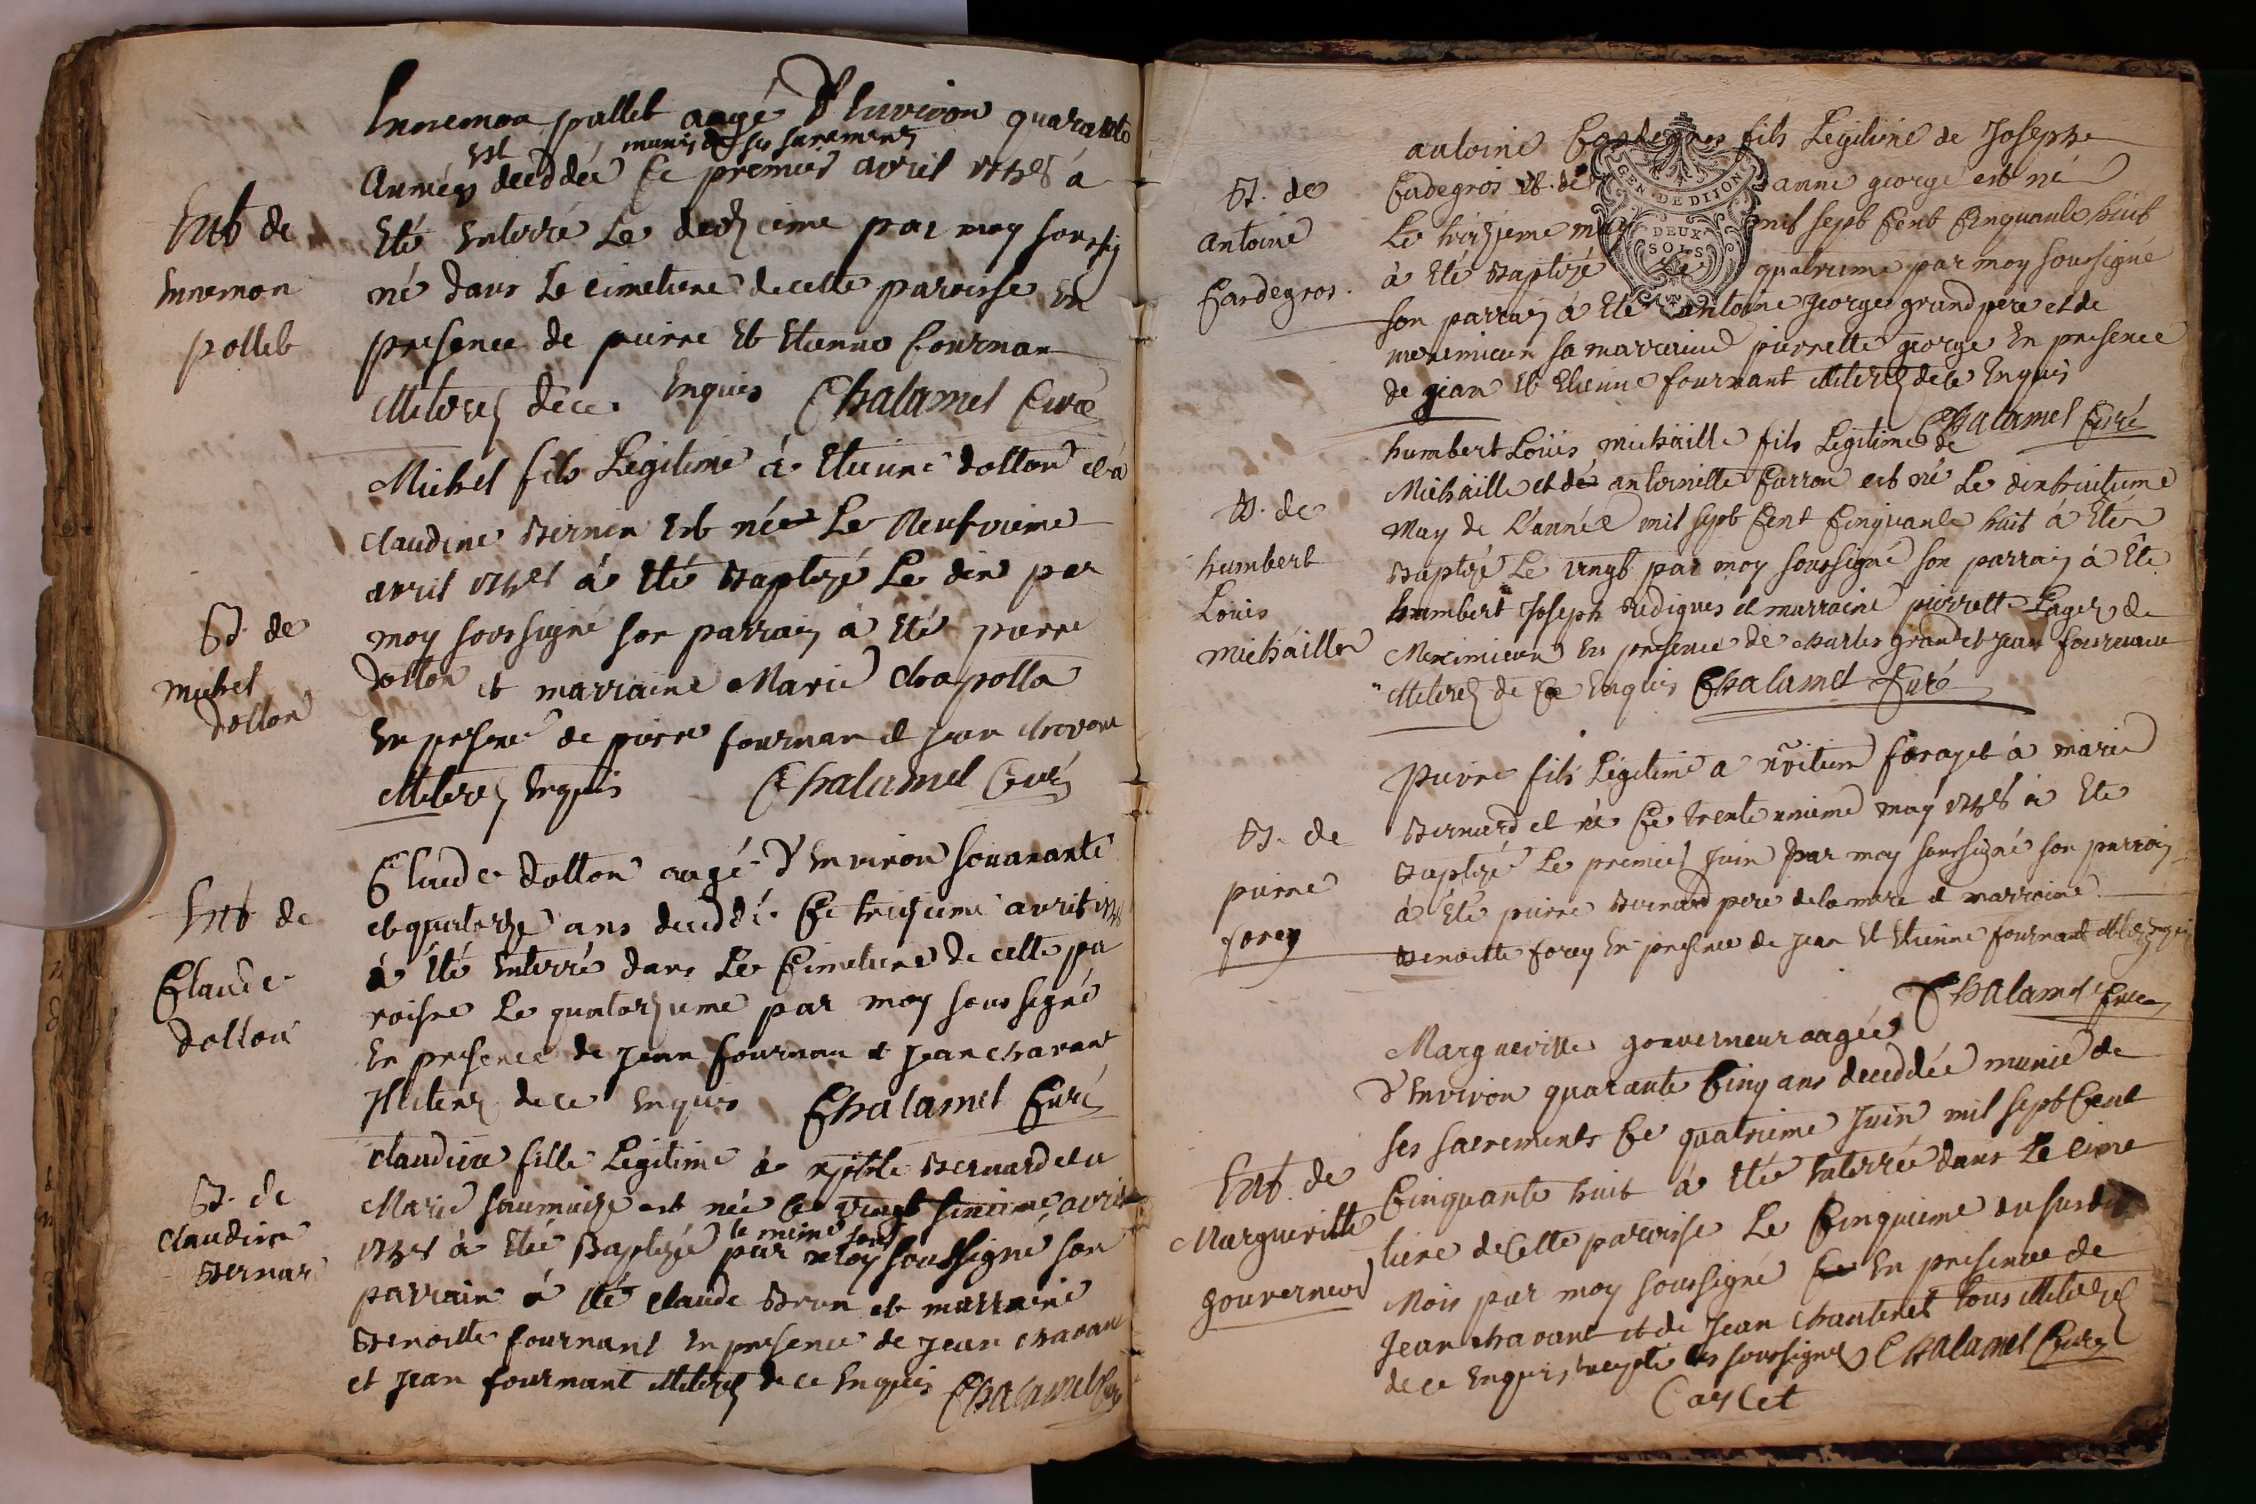 Ent de
Ennemon
pollet
Ennemon pollet aagé d'Environ quarante
est munis de ses sacremens
Années deceddée Ce premier avril 1758 à
Eté Enterré Le deuzieme par moy soussig
né dans Le cimetiere de cette paroisse En
presence de pierre Et Etienne fournan
illiterez de ce Enquis Chalamel Curé
Bt. de
michel
dollon
Michel fils Legitime à Etienne dollon et à
claudine Bernin Est née Le Neufvieme
avril 1758 à Eté Baptizé Le dix par
moy soussigné son parrain à Eté pierre
dollon et marraine Marie
En presence de pierre fournan et jean chavan
illiterez Enquis Chalamel Curé
Ent de
Claude
dollon
Claude dollon aagé d'Environ soixante
et quatorze ans deceddé Ce treizieme avril
à Eté Enterré dans Le Cimetiere de cette pa
roisse Le quatorzieme par moy soussigné
En presence de jean fournan et jean chavant
illiterez de ce Enquis Chalamel Curé
Bt. de
claudine
Bernar
claudine fille Legitime à Bernard et a
Marie saumaize est née Ce vingt avril
le meme jour
1758 à Eté Baptizée par moy soussigné son
parrain à Eté claude Brun et marraine
Benoitte fournant En presence de jean chavant
et jean fournant illiterez de ce Enquis Chalamel Curé
Bt. de
antoine
Cardegros
antoine Cardegros fils Legitime de Joseph
Cadegros Et de anne george est né
Le troizieme may mil sept Cent Cinquante huit
à Eté Baptizé Le quatrieme par moy soussigné
son parrain à Eté antoine george grand pere et de
meximieux sa marraine pierrette george En presence
de jean Et Etienne fournant illiterez de ce Enquis
Chalamel Curé
GEN DE DIJON
DEUX
SOLS
Bt. de
humbert
Louis
michaille
humbert Louis michaille fils Legitime de
Michaille et de antoinette Carron est né Le dixhuitieme
may de L'année mil sept Cent Cinquante huit à Eté
Baptizé Le vingt par moy soussigné son parrain à Eté
humbert Joseph et marraine pierrette Lager de
Meximieux En presence de charles grand et jean fournant
illiterez de Ce Enquis Chalamel Curé
Bt. de
pierre
forey
pierre fils Legitime a et à marie
Bernard et né Ce trente unieme may 1758 à Eté
Baptizé Le premier Juin par moy soussigné son parrain
à Eté pierre Bernard pere de la mere et marraine
Benoitte forey En presence de jean Et Etienne fournant illiterez Enquis
Chalamel Curé
Ent. de
Margueritte
gouverneur
Margueritte gouverneur aagée
d'Environ quarante Cinq ans deceddée munie de
ses sacrements Ce quatrieme Juin mil sept Cent
Cinquante huit à Eté Enterrée dans Le cime
tiere de Cette paroisse Le Cinquieme du susdit
Mois par moy soussigné En presence de
Jean chavant et de Jean Chantenet tous illiterez
de ce Enquis, Excepté les soussignez Chalamel Curé
Carlet